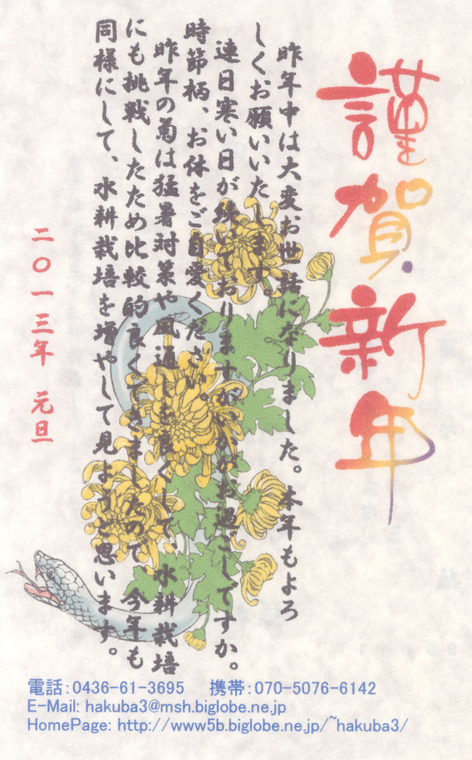 謹賀新年
昨年中は大変お世話になりました。本年もよろ
しくお願いいたします。
連日寒い日が続いておりますがいかがお過ごしですか。
時節柄、お体をご自愛ください。
昨年の菊は猛暑対策や風通しを良くして、水耕栽培
にも挑戦したため比較的良くできましたので、今年も
同様にして、水耕栽培を増やして見ようと思います。
二〇一三年 元旦
電話:0436-61-3695 携帯:070-5076-6142
E-Mail: hakuba3@msh.biglobe.ne.jp
HomePage: http://www5b.biglobe.ne.jp/~hakuba3/